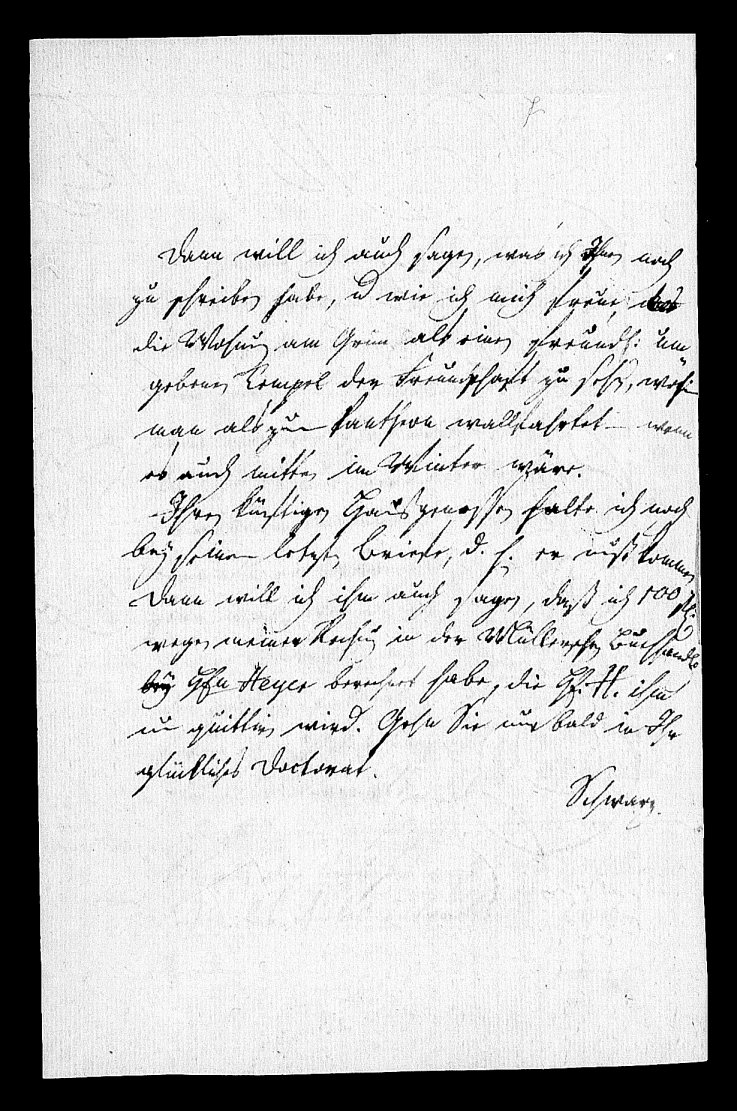 Dann will ich auch sagen, was ich Ihnen noch
zu schreiben habe, u wie ich mich freue,
die Wohnung am Grim als einen freundl: um
gebenen Tempel der Freundschaft zu sehn, wohin
man als zum Pantheon wallfahrtet – wenn
es auch mitten im Winter wäre.
Ihren künftigen Hausgenossen halte ich noch
bey seinem letzten Briefe, d. h. er muß kommen
Dann will ich ihm auch sagen, daß ich 100 fl:
wegen meiner Rechnung in der Müllerschen Buchhandl
bey Hfn Heyer berechnet habe, die H. H. ihm
nun quittiren wird. Gehn Sie nur bald in Ihr
glückliches Doctorat.
Schwarz.